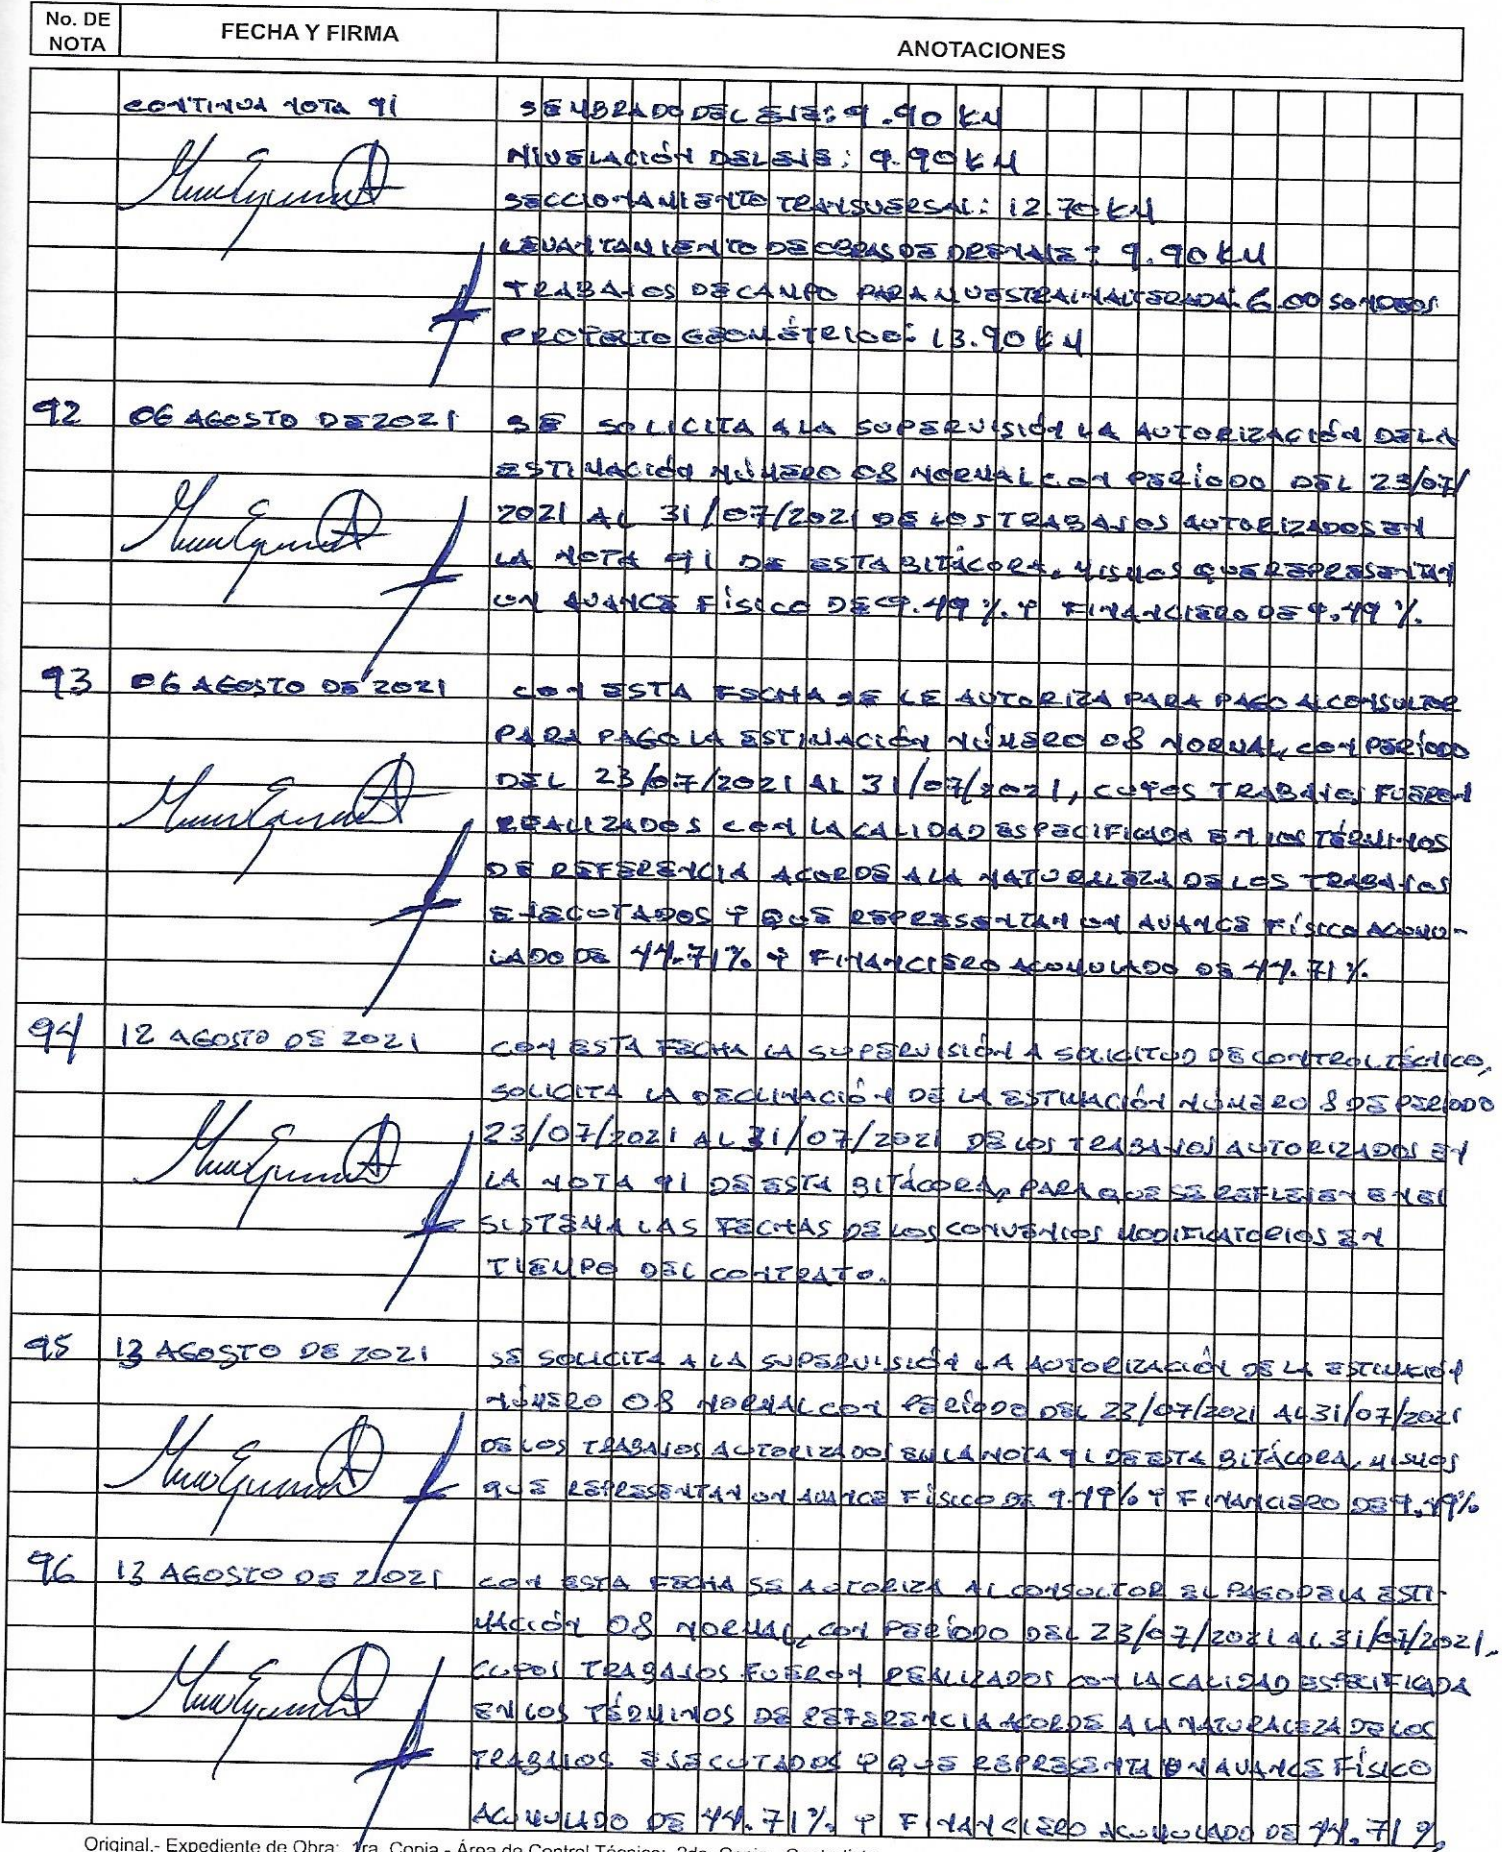 No. DE NOTA FECHA Y FIRMA ANOTACIONES
CONTINUA NOTA 91 SEMBRADO DEL EJE: 9.90 KM
NIVELACIÓN DEL EJE: 9.90 KM
SECCIONAMIENTO TRANSVERSAL: 12.70 KM
LEVANTAMIENTO DE OBRAS DE DRENAJE: 9.90 KM
TRABAJOS DE CAMPO PARA MUESTRA INALTERADA: 6.00 SONDEOS
PROYECTO GEOMÉTRICO: 13.90 KM
92 06 AGOSTO DE 2021 SE SOLICITA A LA SUPERVISIÓN LA AUTORIZACIÓN DE LA
ESTIMACIÓN NÚMERO 08 NORMAL CON PERÍODO DEL 23/07/
2021 AL 31/07/2021 DE LOS TRABAJOS AUTORIZADOS EN
LA NOTA 91 DE ESTA BITÁCORA, MISMOS QUE REPRESENTAN
UN AVANCE FÍSICO DE 9.49 % Y FINANCIERO DE 9.49 %.
93 06 AGOSTO DE 2021 CON ESTA FECHA SE LE AUTORIZA PARA PAGO AL CONSULTOR
PARA PAGO LA ESTIMACIÓN NÚMERO 08 NORMAL, CON PERÍODO
DEL 23/07/2021 AL 31/07/2021, CUYOS TRABAJOS FUERON
REALIZADOS CON LA CALIDAD ESPECIFICADA EN LOS TÉRMINOS
DE REFERENCIA ACORDE A LA NATURALEZA DE LOS TRABAJOS
EJECUTADOS Y QUE REPRESENTAN UN AVANCE FÍSICO ACUMU-
LADO DE 44.71% Y FINANCIERO ACUMULADO DE 44.71%.
94 12 AGOSTO DE 2021 CON ESTA FECHA LA SUPERVISIÓN A SOLICITUD DE CONTROL TÉCNICO,
SOLICITA LA DECLINACIÓN DE LA ESTIMACIÓN NÚMERO 8 DE PERÍODO
23/07/2021 AL 31/07/2021 DE LOS TRABAJOS AUTORIZADOS EN
LA NOTA 91 DE ESTA BITÁCORA, PARA QUE SE REFLEJEN EN EL
SISTEMA LAS FECHAS DE LOS CONVENIOS MODIFICATORIOS EN
TIEMPO DEL CONTRATO.
95 13 AGOSTO DE 2021 SE SOLICITA A LA SUPERVISIÓN LA AUTORIZACIÓN DE LA ESTIMACIÓN
NÚMERO 08 NORMAL CON PERÍODO DEL 23/07/2021 AL 31/07/2021
DE LOS TRABAJOS AUTORIZADOS EN LA NOTA 91 DE ESTA BITÁCORA, MISMOS
QUE REPRESENTAN UN AVANCE FÍSICO DE 9.49% Y FINANCIERO DE 9.49%
96 13 AGOSTO DE 2021 CON ESTA FECHA SE AUTORIZA AL CONSULTOR EL PAGO DE LA ESTI-
MACIÓN 08 NORMAL, CON PERÍODO DEL 23/07/2021 AL 31/07/2021,
CUYOS TRABAJOS FUERON REALIZADOS CON LA CALIDAD ESPECIFICADA
EN LOS TÉRMINOS DE REFERENCIA ACORDE A LA NATURALEZA DE LOS
TRABAJOS EJECUTADOS Y QUE REPRESENTA UN AVANCE FÍSICO
ACUMULADO DE 44.71% Y FINANCIERO ACUMULADO DE 44.71%
Original.- Expediente de Obra; 1ra. Copia.- Área de Control Técnico;